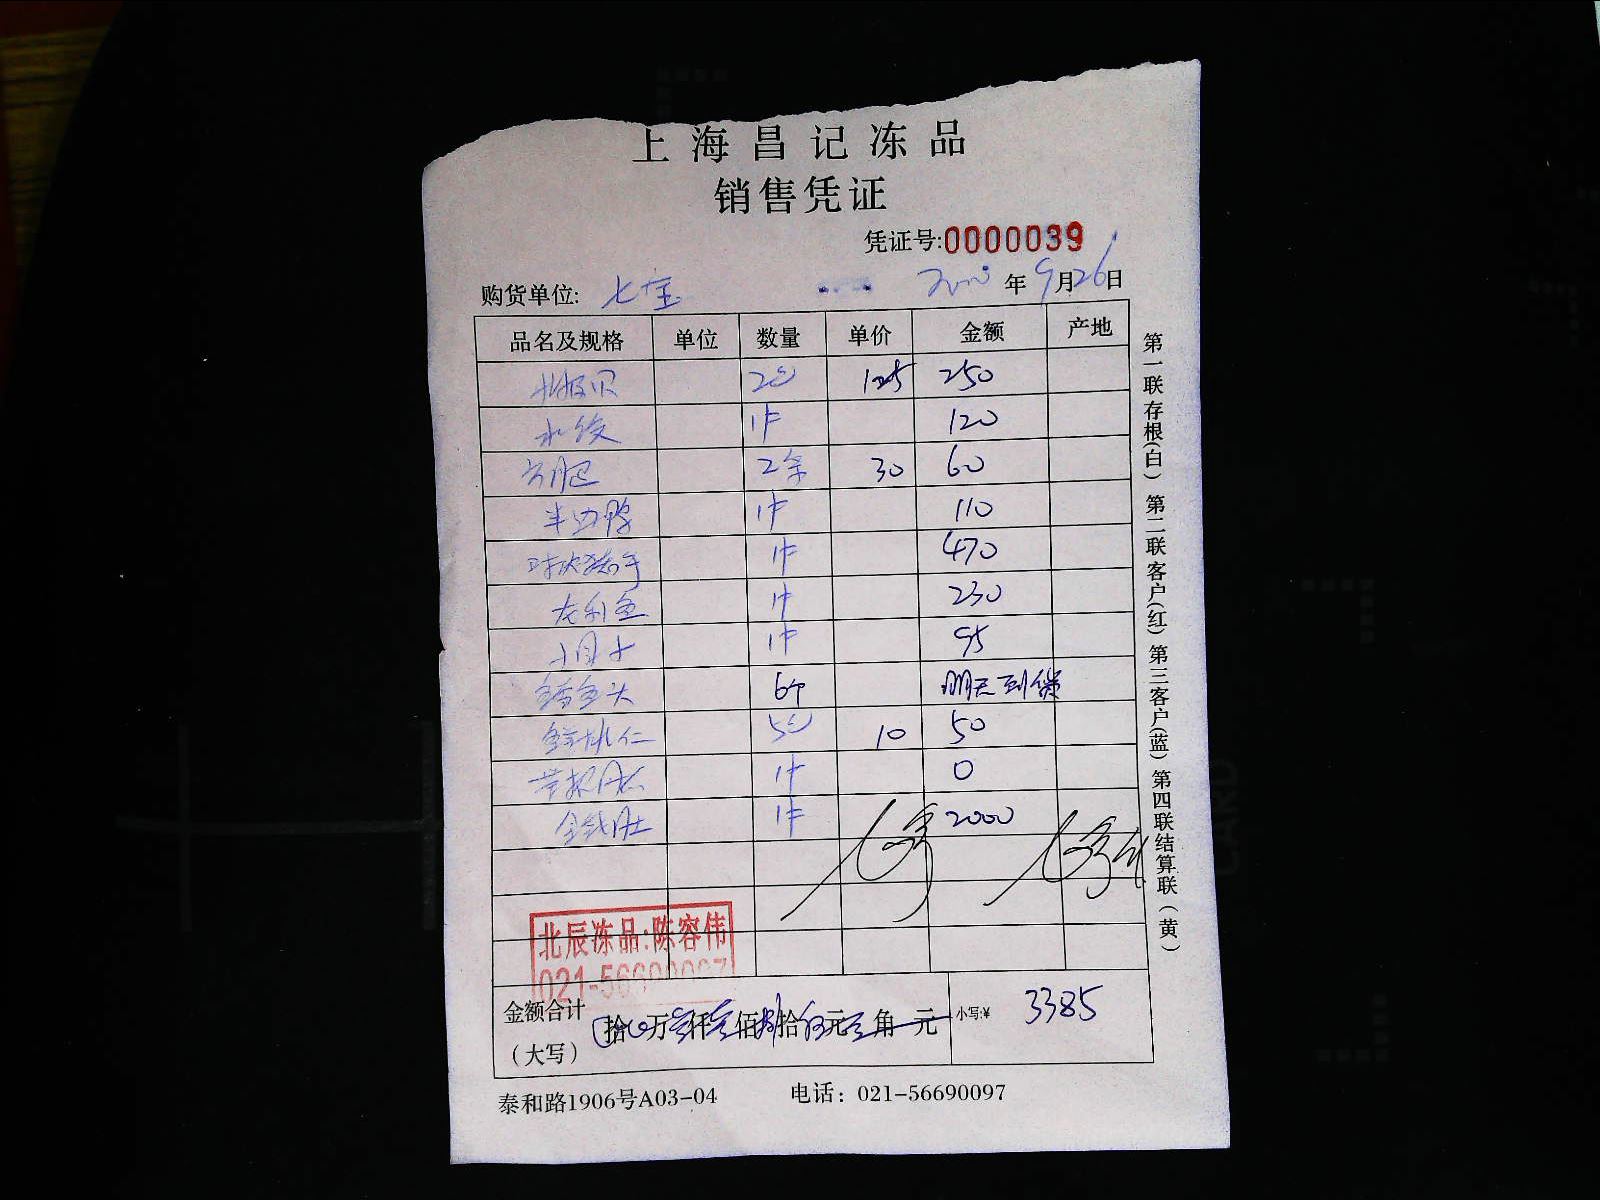 上海昌记冻品
销售凭证
凭证号:0000039
购货单位: 七宝 年 9月26日
品名及规格 单位 数量 单价 金额 产地
北极贝 2包 125 250
水饺 1件 120
方肥 2条 30 60
半边鸭 1件 110
1件 470
龙利鱼 1件 230
1件 95
鱼头 6个 明天到货
桃仁 5包 10 50
1件 0
金钱肚 1件 2000
北辰冻品:陈容伟
021-56690097
金额合计
(大写) 拾万仟佰拾元角元 小写:¥ 3385
泰和路1906号A03-04 电话：021-56690097
第一联存根(白) 第二联客户(红) 第三客户(蓝) 第四联结算联(黄)